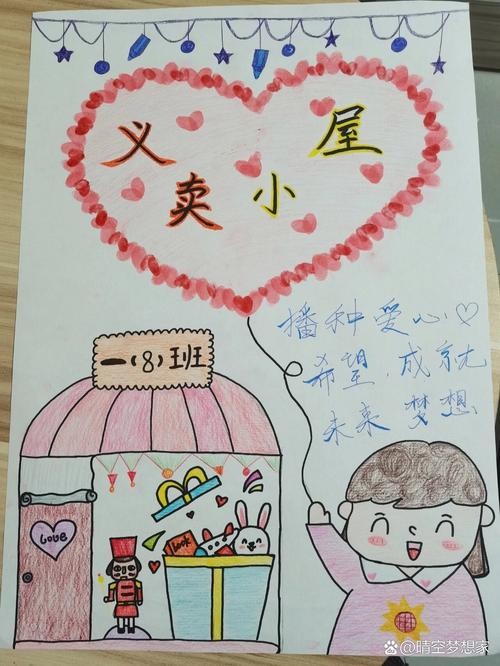 义卖小屋
播种爱心
希望,成就
未来 梦想
一(8)班
Love
Look
@晴空梦想家